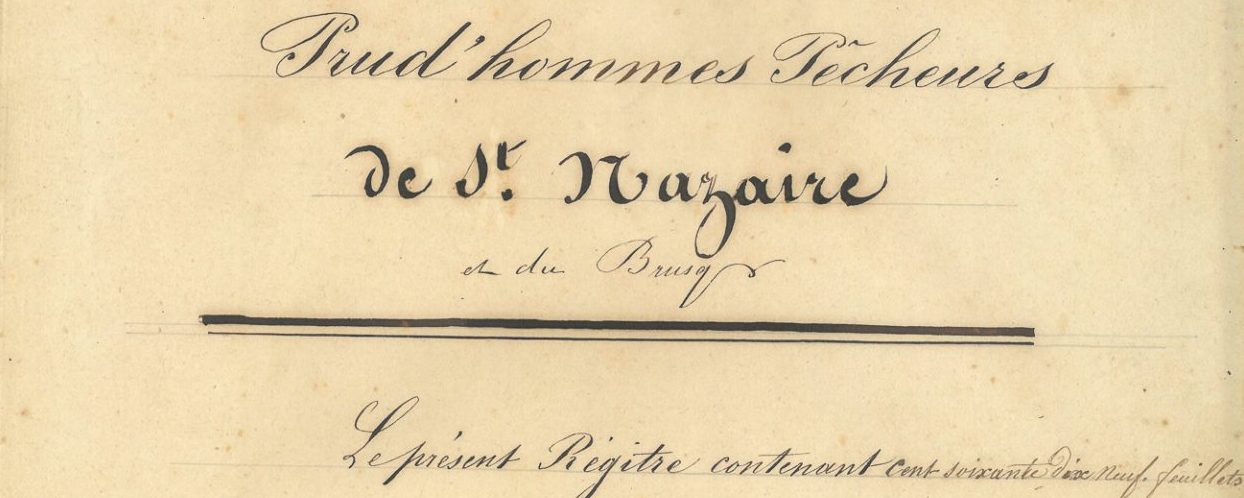 Prud'hommes Pêcheurs
de St. Nazaire
et du Brusq
Le présent Régitre contenant cent soixante Dix neuf feuillets